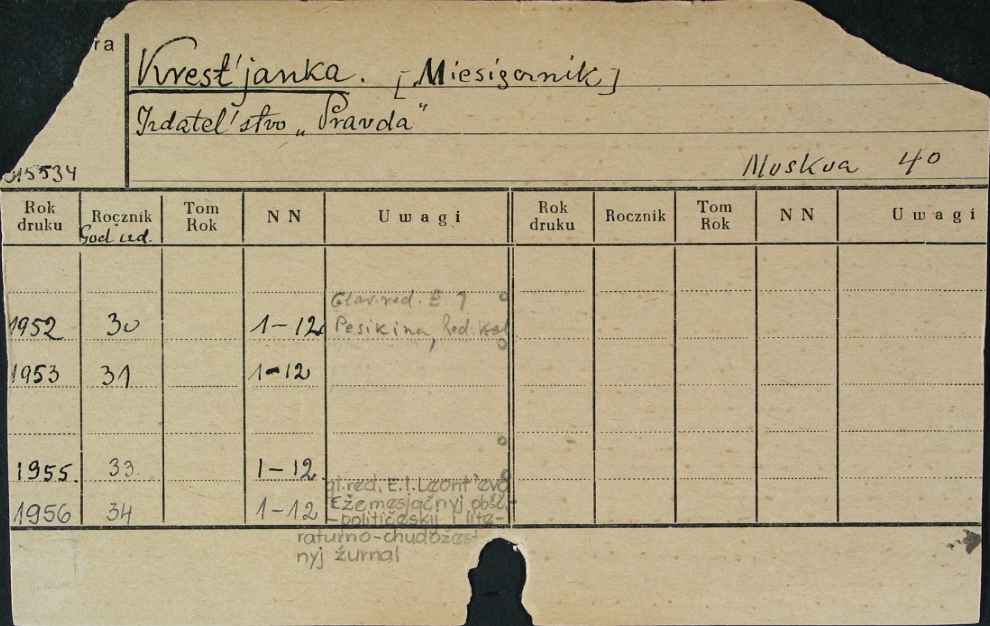 ra
Krest'janka. [Miesięcznik]
Izdatel'stvo „Pravda"
Moskva 40
Rok druku Rocznik God izd. Tom Rok NN Uwagi Rok druku Rocznik Tom Rok NN Uwagi
Glav. red. E
1952 30 1-12 Pesikina, Red. Kol
1953 31 1-12
1955. 33. 1-12
gl. red. E. I. Leont'eva
1956 34 1-12 Ežemesjačnyj obšč.-
-političeskij i lite-
raturno-chudožest
nyj žurnal